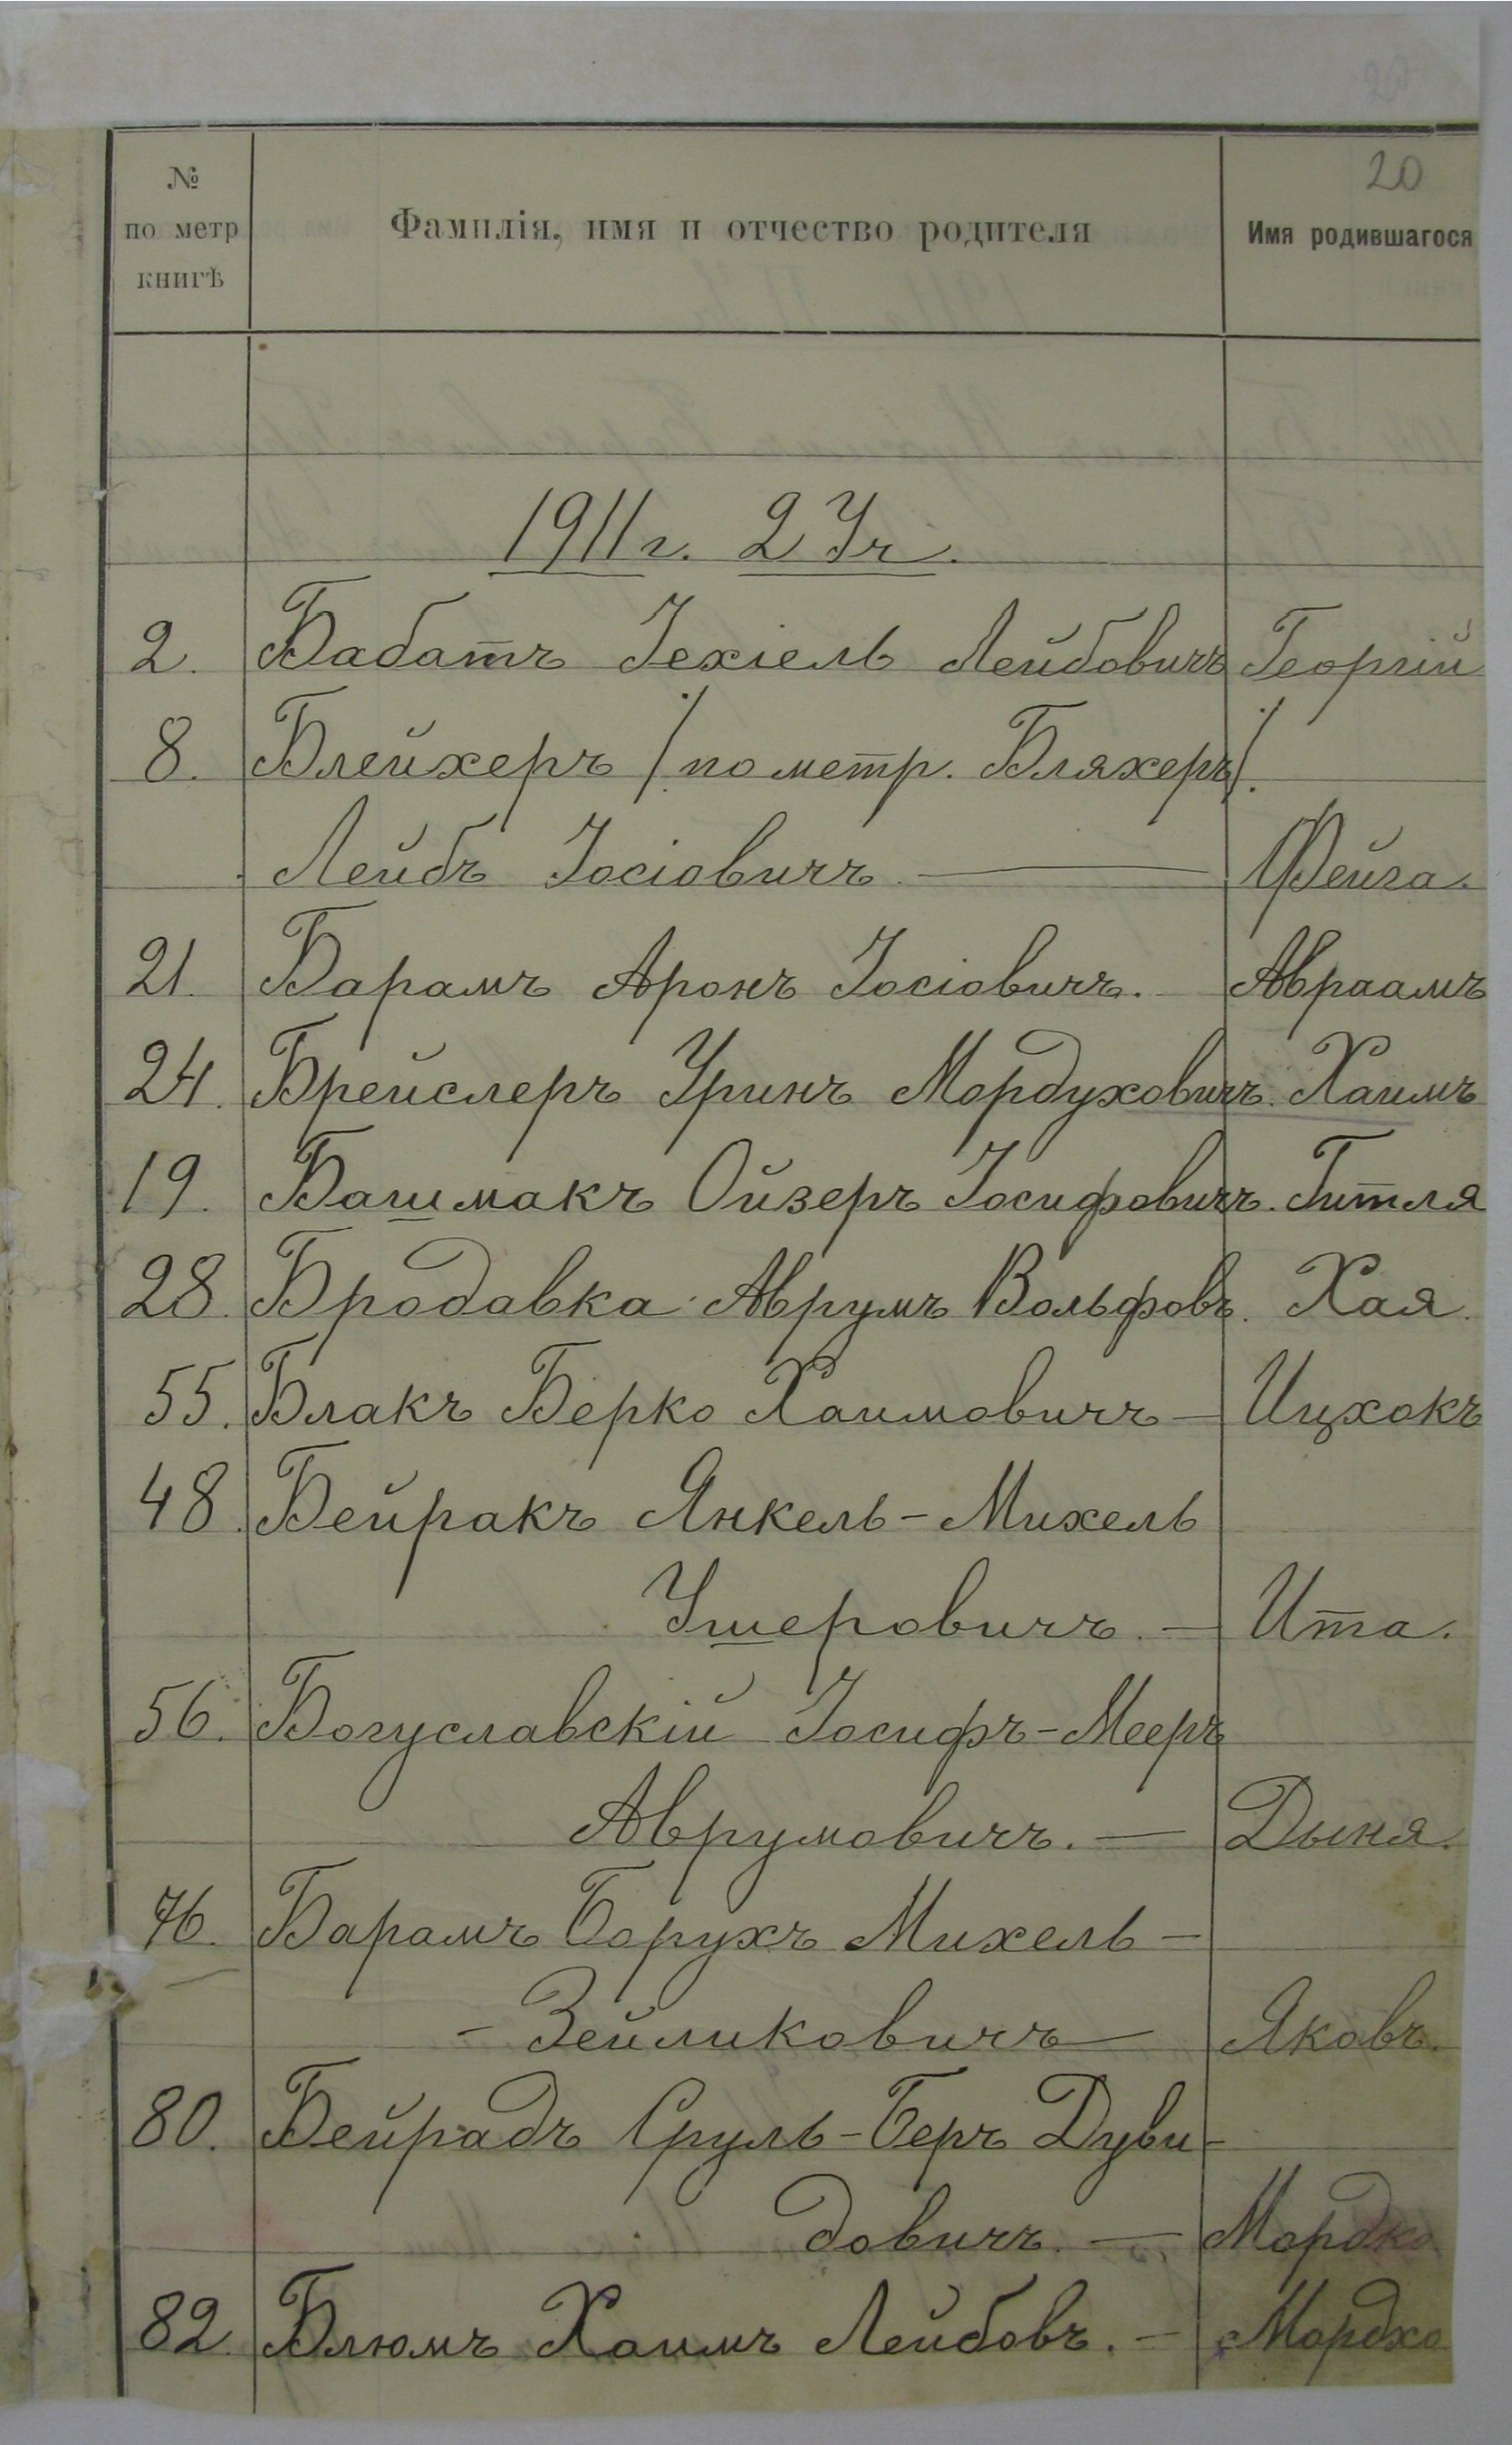 20
№
по метр
книгѣ
Фамилія, имя и отчество родителя
Имя родившагося
1911 г. 2 Уч.
2. Бабатъ Іехіель Лейбовичъ Георгій
8. Блейхеръ /по метр. Бляхеръ/.
Лейбъ Іосіовичъ — Фейга.
21. Барамъ Аронъ Іосіовичъ. Авраамъ
24. Брейслеръ Уринъ Мордуховичъ. Хаимъ
19. Башмакъ Ойзеръ Іосифовичъ. Гитля
28. Бродавка Аврумъ Вольфовъ. Хая.
55. Блакъ Берко Хаимовичъ — Ицхокъ
48. Бейракъ Янкель-Михель
Ушеровичъ. — Ита.
56. Богуславскій Іосифъ-Мееръ
Аврумовичъ. — Дыня.
76. Барамъ Борухъ Михель-
- Зейликовичъ — Яковъ.
80. Бейрадъ Сруль-Беръ Дуви-
довичъ. — Мордко
82. Блюмъ Хаимъ Лейбовъ. — Мордхо